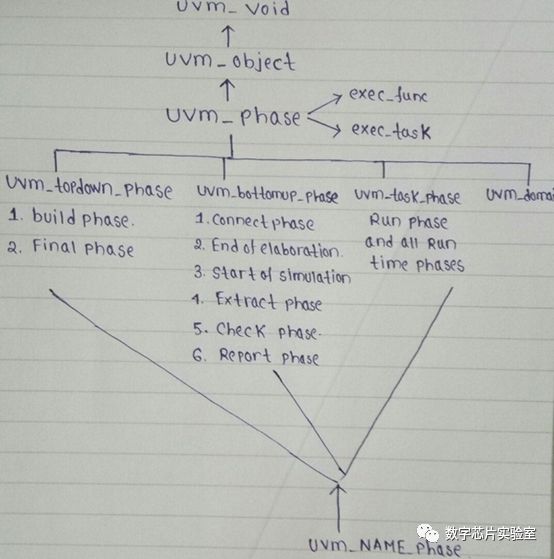 uvm_void
uvm_object
uvm_phase
exec_func
exec_task
uvm_topdown_phase
1. build phase.
2. Final phase
uvm_bottomup_phase
1. Connect phase
2. End of elaboration.
3. Start of simulation
4. Extract phase
5. Check phase.
6. Report phase
uvm_task_phase
Run phase
and all Run
time phases
uvm_domai
uvm_NAME_phase
数字芯片实验室